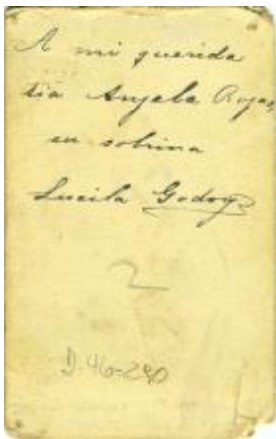 A mi querida
tia Angela Rojas,
su sobrina
Lucila Godoy
2
D.46-290